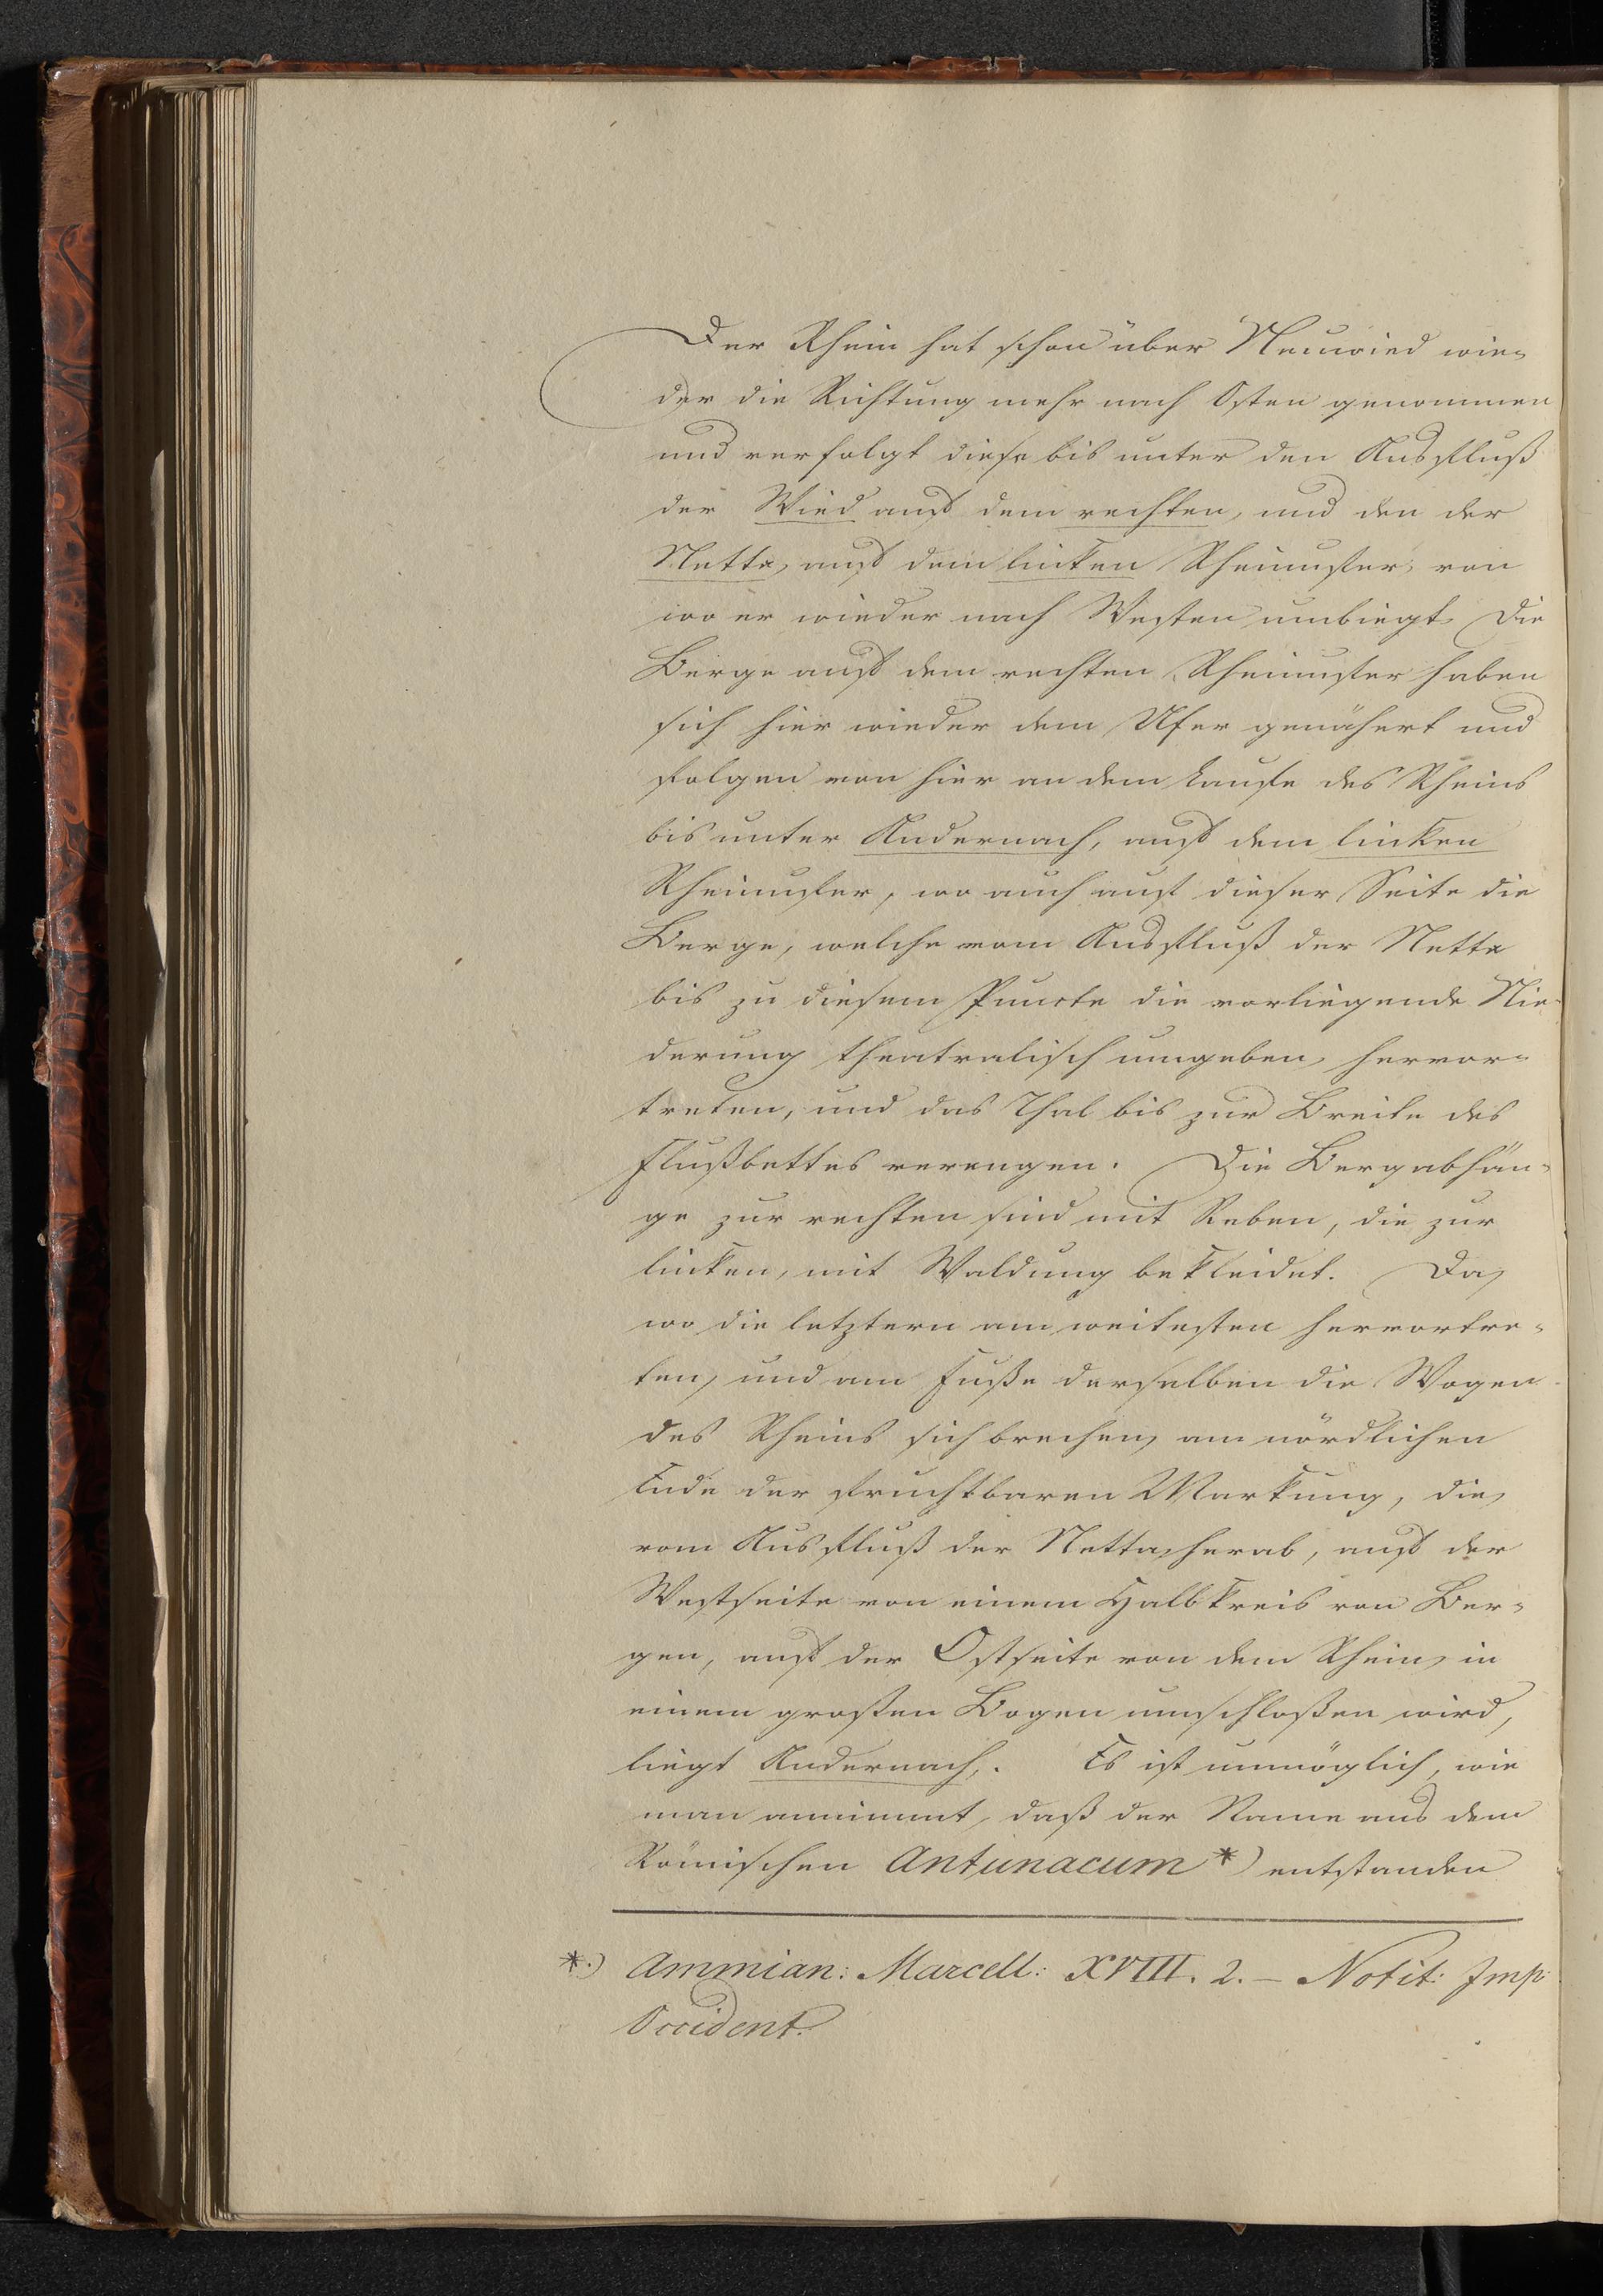 Der Rhein hat schon über Neuwied wie-
der die Richtung mehr nach Osten genommen
und verfolgt diese bis unter den Ausfluß
der Wied auf dem rechten, und den der
Nette, auf dem linken Rheinufer, von
wo er wieder nach Westen umbiegt. Die
Berge auf dem rechten Rheinufer haben
sich hier wieder dem Ufer genähert und
folgen von hier an dem Laufe des Rheins
bis unter Andernach, auf dem linken
Rheinufer, wo auch auf dieser Seite die
Berge, welche vom Ausfluß der Nette
bis zu diesem Puncte die vorliegende Nie-
derung theatralisch umgeben, hervor-
treten, und das Thal bis zur Breite des
Flußbettes verengen. Die Bergabhän-
ge zur rechten sind mit Reben, die zur
linken, mit Waldung bekleidet. Da,
wo die letztern am weitesten hervortre-
ten, und am Fuße derselben die Wogen
des Rheins sich brechen, am nördlichen
Ende der fruchtbaren Markung, die,
vom Ausfluß der Nette, herab, auf der
Westseite von einem Halbkreis von Ber-
gen, auf der Ostseite von dem Rhein, in
einem großen Bogen umschloßen wird,
liegt Andernach. Es ist unmöglich, wie
man annimmt, daß der Name aus dem
Römischen Antunacum *) entstanden
*) Ammian: Marcell: XVIII. 2. – Notit: Imp:
Occident.